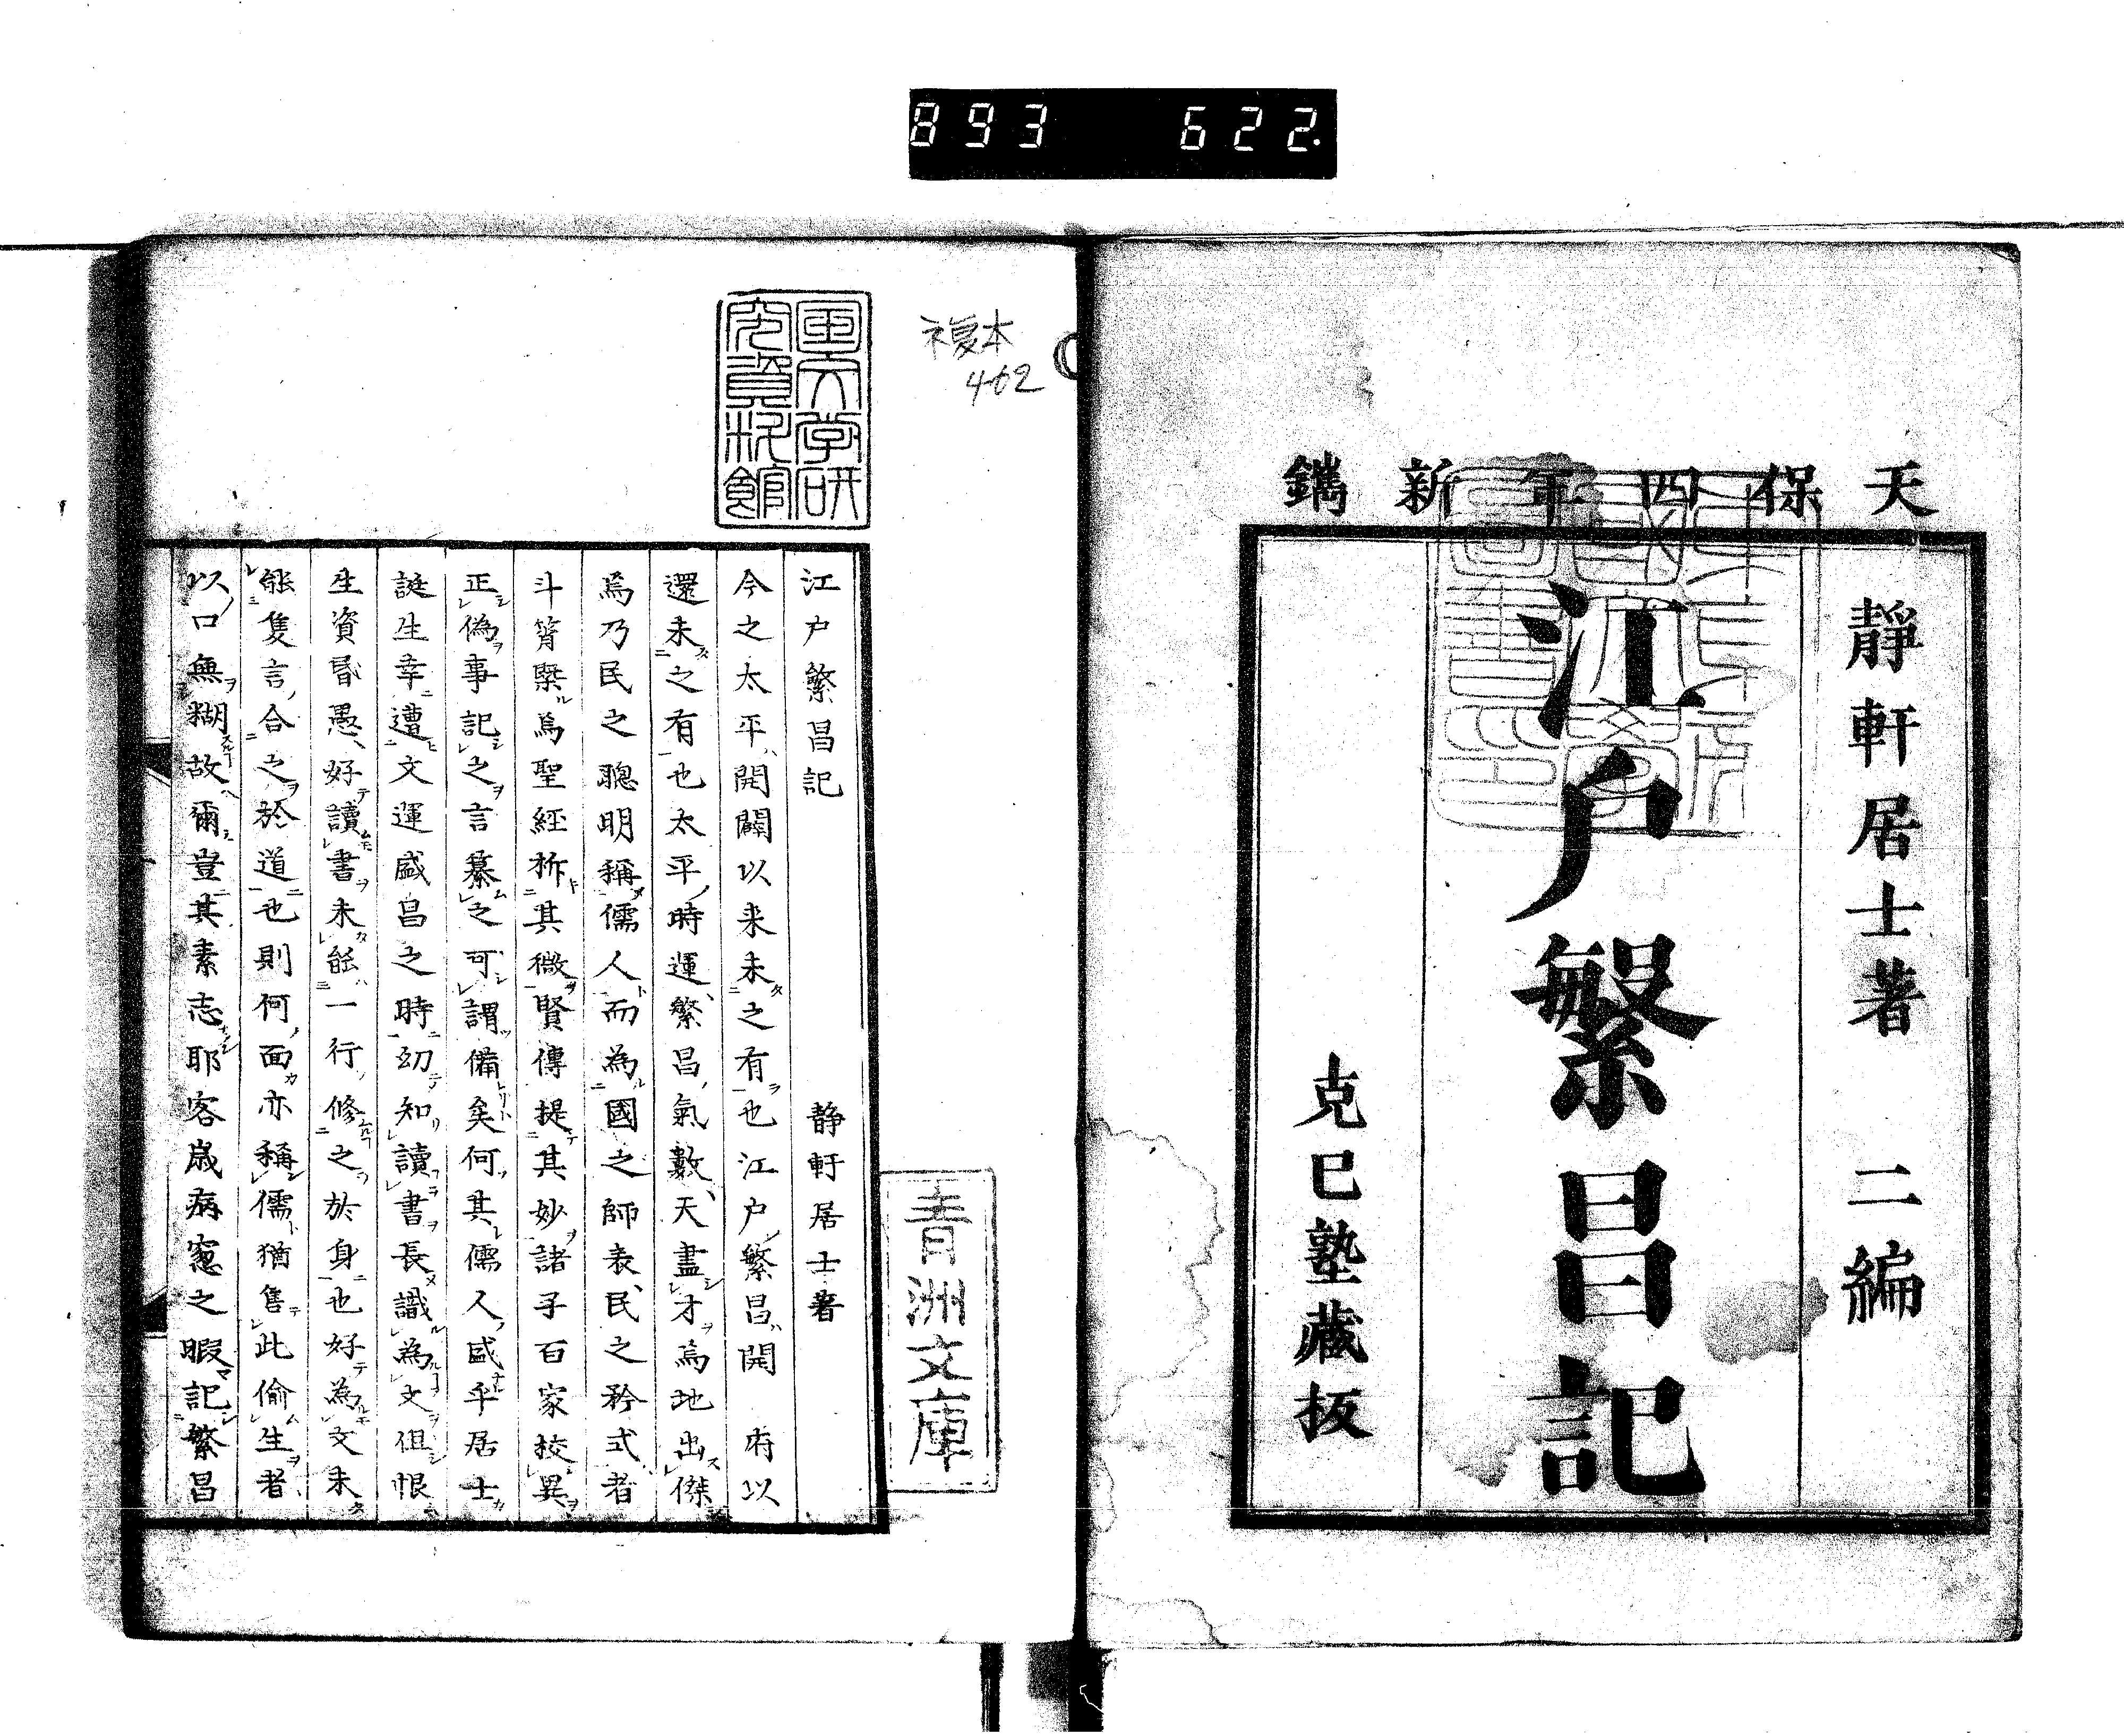 893 622.
天保四年新鐫
靜軒居士著 二編
江戸繁昌記
克巳塾藏板
複本
402
国文学研
究資料館
青洲文庫
江戸繁昌記 静軒居士著
今之太平開闢以来未之有也江戸繁昌開 府以
還未之有也太平時運繁昌氣數天盡才焉地出傑
焉乃民之聰明稱儒人而為國之師表民之矜式者
斗筲槩焉聖經析其微賢傳提其妙諸子百家挍異
正偽事記之言纂之可謂備矣何其儒人盛乎居士
誕生幸遭文運盛昌之時幼知讀書長識為文但恨
生資昬愚好讀書未能一行修之於身也好為文未
能隻言合之於道也則何面亦稱儒猶售此偷生者
以口無糊故爾豈其素志耶客歳病窓之暇記繁昌